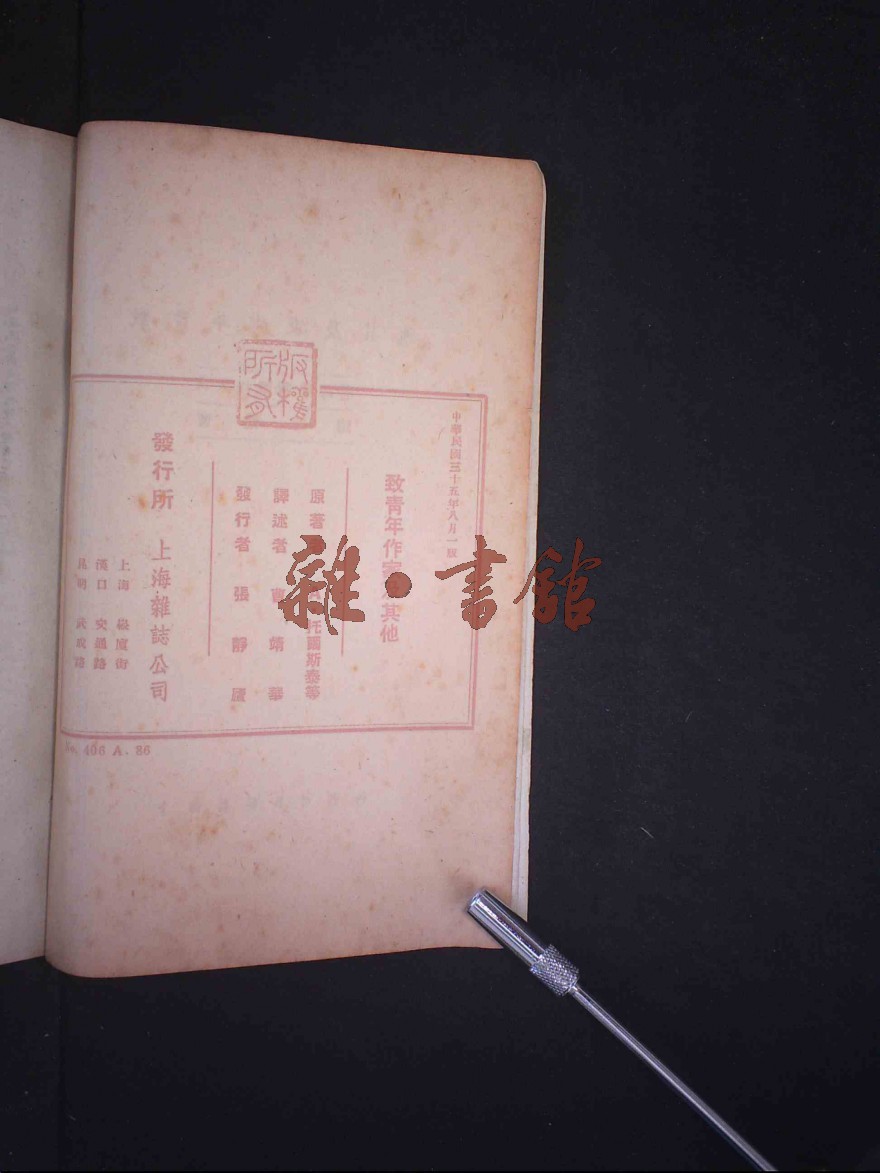 版權
所有
中華民國三十五年八月一版
致青年作家及其他
原著者 托爾斯泰等
譯述者 曹靖華
發行者 張靜廬
發行所 上海雜誌公司
上海
漢口 交通路
昆明 武成路
No. 406 A. 86
雜·書館